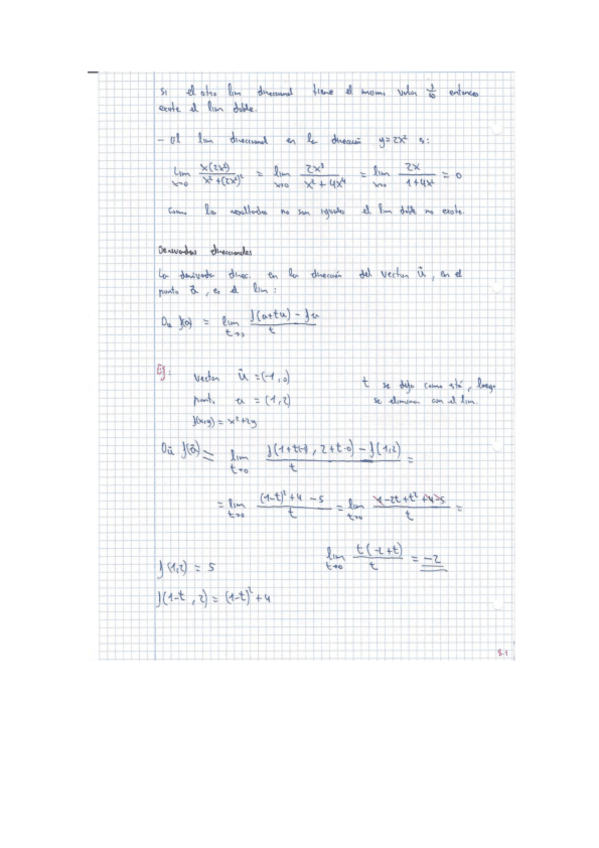 Si el otro lim direccional tiene el mismo valor 3/10 entonces
existe el lim doble.
- El lim direccional en la dirección y=2x² es:
lim x→0 x(2x²)/(x²+(2x²)²) = lim x→0 2x³/(x²+4x⁴) = lim x→0 2x/(1+4x²) = 0
Como los resultados no son iguales el lim doble no existe.
Derivadas direccionales
La derivada direc. en la dirección del vector ū, en el
punto ā, es el lim:
Du f(a) = lim t→0 (f(a+tu) - fa)/t
Ej: vector ū = (-1,0) t se deja como está, luego
punto a = (1,2) se elimina con el lim.
f(x,y) = x²+2y
Dū f(ā) = lim t→0 (f(1+t(-1), 2+t·0) - f(1,2))/t =
= lim t→0 ((1-t)²+4-5)/t = lim t→0 (1-2t+t²+4-5)/t =
f(1,2) = 5 lim t→0 t(-2+t)/t = -2
f(1-t, 2) = (1-t)²+4